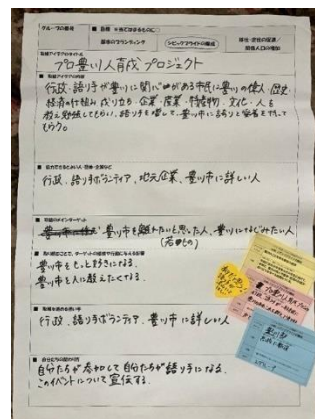 グループの番号
■ 目標 ※当てはまるものに○
豊市のブランディング
シビックプライドの醸成
移住・定住の促進／
関係人口の増加
■ 取組アイデアのタイトル
プロ豊川人育成プロジェクト
■ 取組アイデアの内容
行政、語り手が豊川に関心がある市民に豊川の偉人、歴史、
経済の仕組み、成り立ち、企業、産業、特産物、文化、人を
教え勉強してもらい、語り手を増して、豊川市に誇りと愛着を持って
もらう。
行政、語り手ボランティア、地元企業、豊川市に詳しい人
豊川市を離れたいと思った人、豊川になじみたい人
(若もの)
豊川市をもっと好きになる。
豊川市を人に教えたくなる。
行政、語り手ボランティア、豊川市に詳しい人
■ 自分たちの関わり方
自分たちが参加して自分たちが語り手になる。
このイベントについて宣伝する。